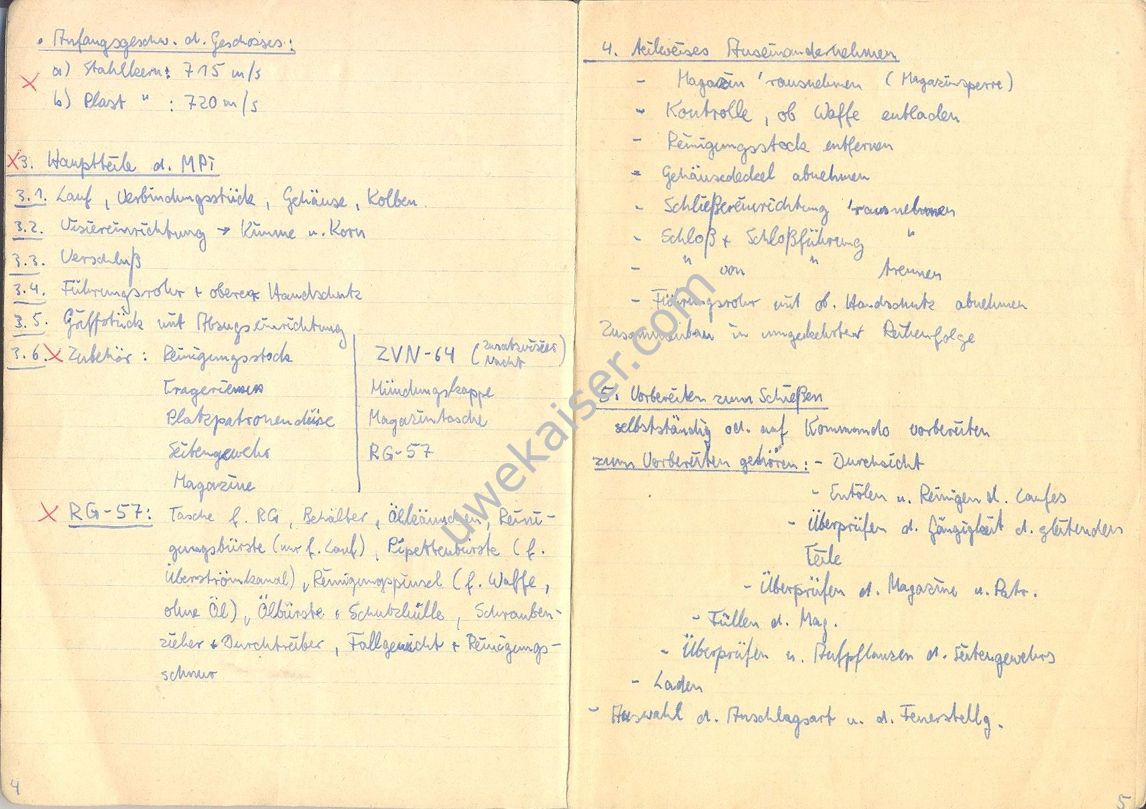 • Anfangsgeschw. d. Geschosses:
a) Stahlkern: 715 m/s
b) Plast " : 720 m/s
3. Hauptteile d. MPi
3.1. Lauf, Verbindungsstück, Gehäuse, Kolben
3.2. Visiereinrichtung → Kimme u. Korn
3.3. Verschluß
3.4. Führungsrohr + oberer Handschutz
3.5. Griffstück mit Abzugseinrichtung
3.6. Zubehör: Reinigungsstock
Trageriemen
Platzpatronendüse
Seitengewehr
Magazine
ZVN-64 (Zusatzvisier Nacht)
Mündungskappe
Magazintasche
RG-57
RG-57: Tasche f. RG, Behälter, Ölkännchen, Reini-
gungsbürste (nur f. Lauf), Pipettenbürste (f.
Überströmkanal), Reinigungspinsel (f. Waffe,
ohne Öl), Ölbürste + Schutzhülle, Schrauben-
zieher + Durchtreiber, Fallgewicht + Reinigungs-
schnur
4
4. teilweises Auseinandernehmen
- Magazin 'rausnehmen (Magazinsperre)
- Kontrolle, ob Waffe entladen
- Reinigungsstock entfernen
- Gehäusedeckel abnehmen
- Schließeinrichtung 'rausnehmen
- Schloß + Schloßführung "
- " von " trennen
- Führungsrohr mit ob. Handschutz abnehmen
Zusammenbau in umgekehrter Reihenfolge
5. Vorbereiten zum Schießen
selbstständig od. auf Kommando vorbereiten
zum Vorbereiten gehören: - Durchsicht
- Entölen u. Reinigen d. Laufes
- Überprüfen d. Gängigkeit d. gleitenden
Teile
- Überprüfen d. Magazine u. Patr.
- Füllen d. Mag.
- Überprüfen u. Aufpflanzen d. Seitengewehrs
- Laden
- Auswahl d. Anschlagsart u. d. Feuerstellg.
5
uwekaiser.com